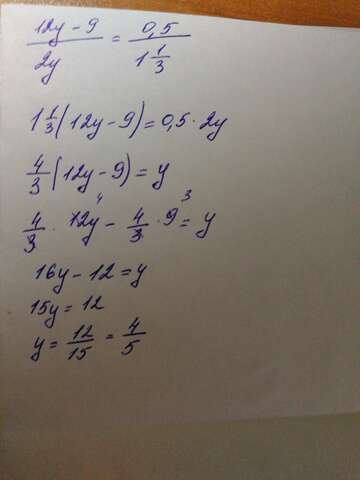 12y - 9 / 2y = 0,5 / 1 1/3
1 1/3 (12y - 9) = 0,5 · 2y
4/3 (12y - 9) = y
4/3 · 12y 4 - 4/3 · 9 3 = y
16y - 12 = y
15y = 12
y = 12/15 = 4/5